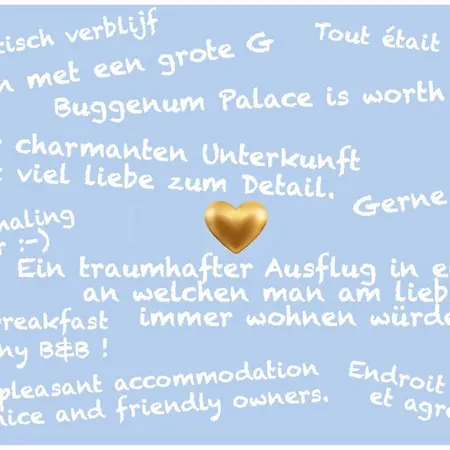 tisch verblijf
Tout était
n met een grote G
Buggenum Palace is worth
charmanten Unterkunft
viel liebe zum Detail.
Gerne
naling
r :-)
Ein traumhafter Ausflug in e
an welchen man am lieb
immer wohnen würde
reakfast
ny B&B !
pleasant accommodation
nice and friendly owners.
Endroit
et agr